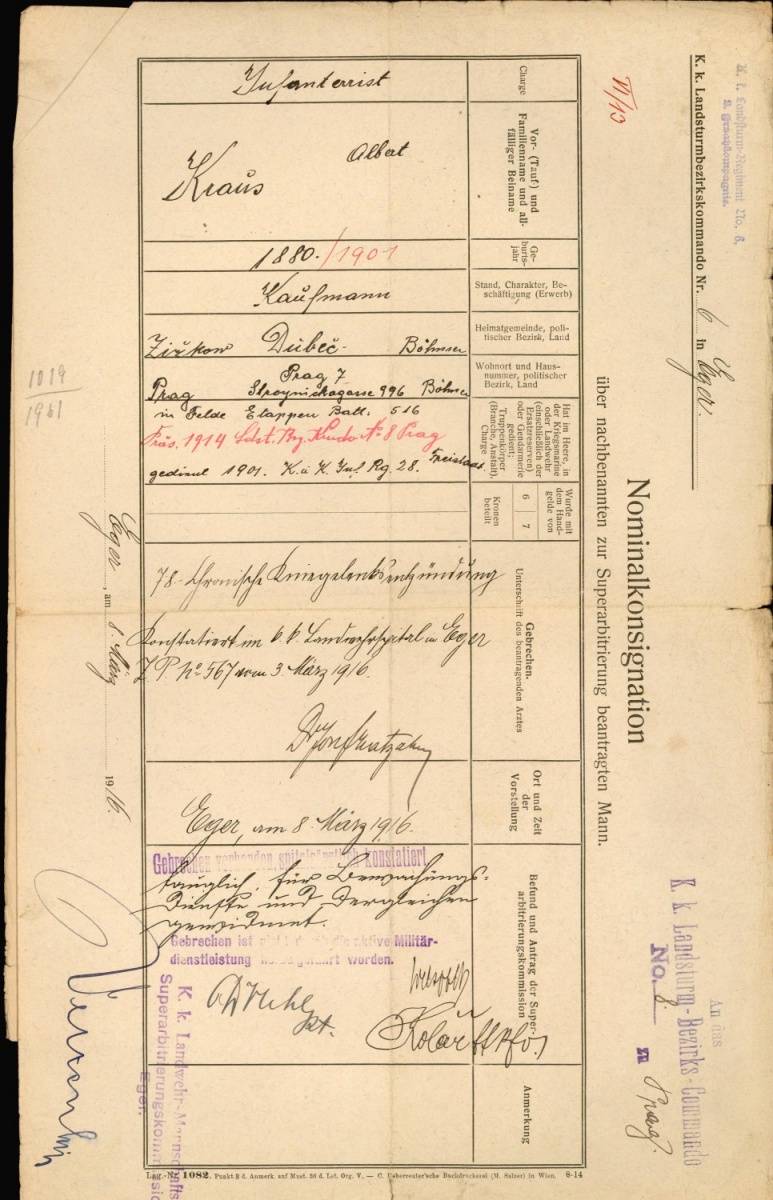 K. k. Landsturm-Regiment No. 6,
K. k. Landsturmbezirkskommando Nr. 6 in Eger.
VI/13
An das
K. k. Landsturm-Bezirks-Commando
No. 8 zu Prag.
Nominalkonsignation
über nachbenannten zur Superarbitrierung beantragten Mann.
Charge
Infanterrist
Vor- (Tauf-) und
Familienname und all-
fälliger Beiname
Albert
Kraus
Ge-
burts-
jahr
1880./1901
Stand, Charakter, Be-
schäftigung (Erwerb)
Kaufmann
Heimatgemeinde, poli-
tischer Bezirk, Land
Žižkow Dubeč- Böhmen
Wohnort und Haus-
nummer, politischer
Bezirk, Land
Prag 7
Prag 996 Böhmen
Hat im Heere, in
der Kriegsmarine
oder Landwehr
(einschließlich der
Ersatzreserven)
oder Gendarmerie
gedient;
Truppenkörper
(Branche, Anstalt),
Charge
im Felde Etappen Batt: 516
Präs. 1914 Ldst. Bz. Kmdo No 8 Prag
gedient 1901. K. u K. Inf Rg. 28.
Wurde mit
dem Hand-
gelde von
6 7
Kronen
beteilt
Gebrechen.
Unterschrift des beantragenden Arztes
78. chronische Kniegelenksentzündung
Konstatiert im k. k. Landwehrspital in Eger
Z. P. No 567 vom 3. März 1916.
Ort und Zeit
der
Vorstellung
Eger, am 8. März 1916.
Befund und Antrag der Super-
arbitrierungskommission
Gebrechen vorhanden, spitalsärztlich konstatiert
tauglich, für Bewachungs-
dienste und dergleichen
gewidmet.
Gebrechen ist nicht durch die aktive Militär-
dienstleistung herbeigeführt worden.
Kolář
Anmerkung
Eger, am 8. März 1916.
K. k. Landwehr-Mannschafts
Superarbitrierungskommissi
Eger.
1019
1961
Lag.-Nr. 1082. Punkt 8 d. Anmerk. auf Must. 56 d. Lst. Org. V. — C. Ueberreuter'sche Buchdruckerei (M. Salzer) in Wien. 8-14